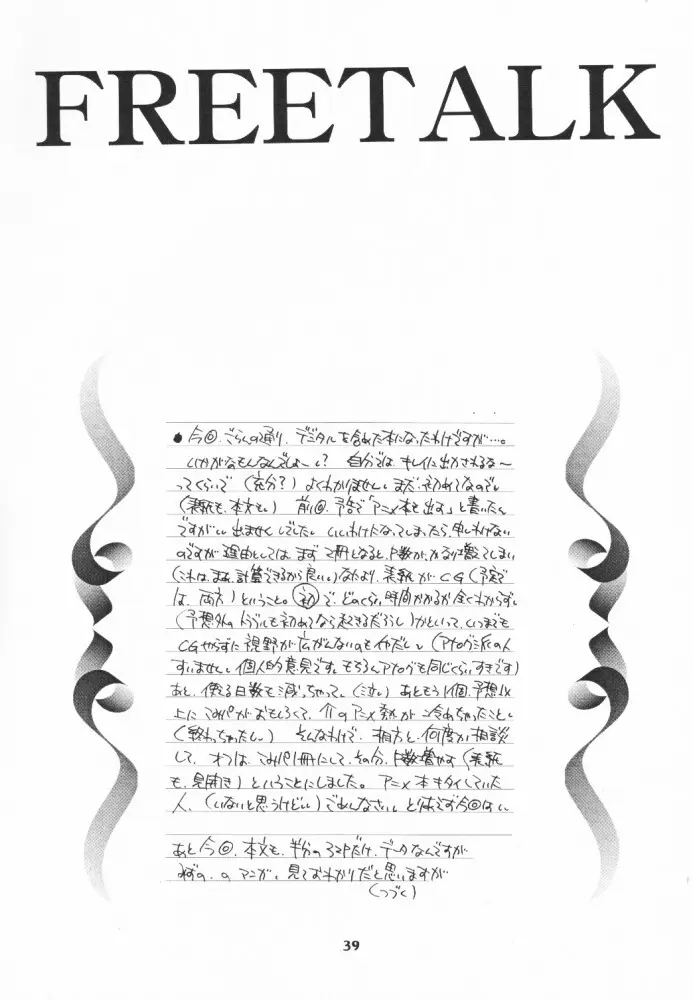 FREETALK
● 今回、ごらんの通り、デジタルを含めた本になったわけですが…。
いかがなもんなんでしょーい? 自分では キレイに出かされるな〜
ってくらいで (充分?) よくわかりません。まだ、初めてなので。
(表紙も、本文も。) 前回、予告で「アニメ本を出す」と書いたん
ですがい 出ませんでした。いいわけになってしまったら、申しわけない
のですが 理由としては まず 2冊となると 枚数が、かなり増えてしまい
(これは、まぁ、計算できるから良い。) なにより、表紙が CG (予定で
は、両方) ということ。初で、どのくらい時間かかるか全くわからず。
(予想外のトラブルも初めてなら起きるだろうし) かといって、いつまでも
CGやらずに 視野が広がんないのもイヤだし。(アナログ派の人
すいません。個人的意見です。もちろんアナログも同じくらいすきです)
あと、使える日数も減っちゃって。(泣) あともう1個、予想以
上に こみパがおもしろくて、 のアニメ熱が 冷めちゃったこと。
(終わっちゃったしぃ) そんなわけで、相方と、何度か相談
して、 こみパ1冊にして、その分、枚数増やす (表紙
も、見開き) ということにしました。アニメ本キタイしていた
人、(いないと思うけどい) ごめんなさい。とりあえず今回はい
あと 今回、本文も、半分の だけ、データなんですが
の マンガい 見ておわかりだと思いますが
(つづく)
39